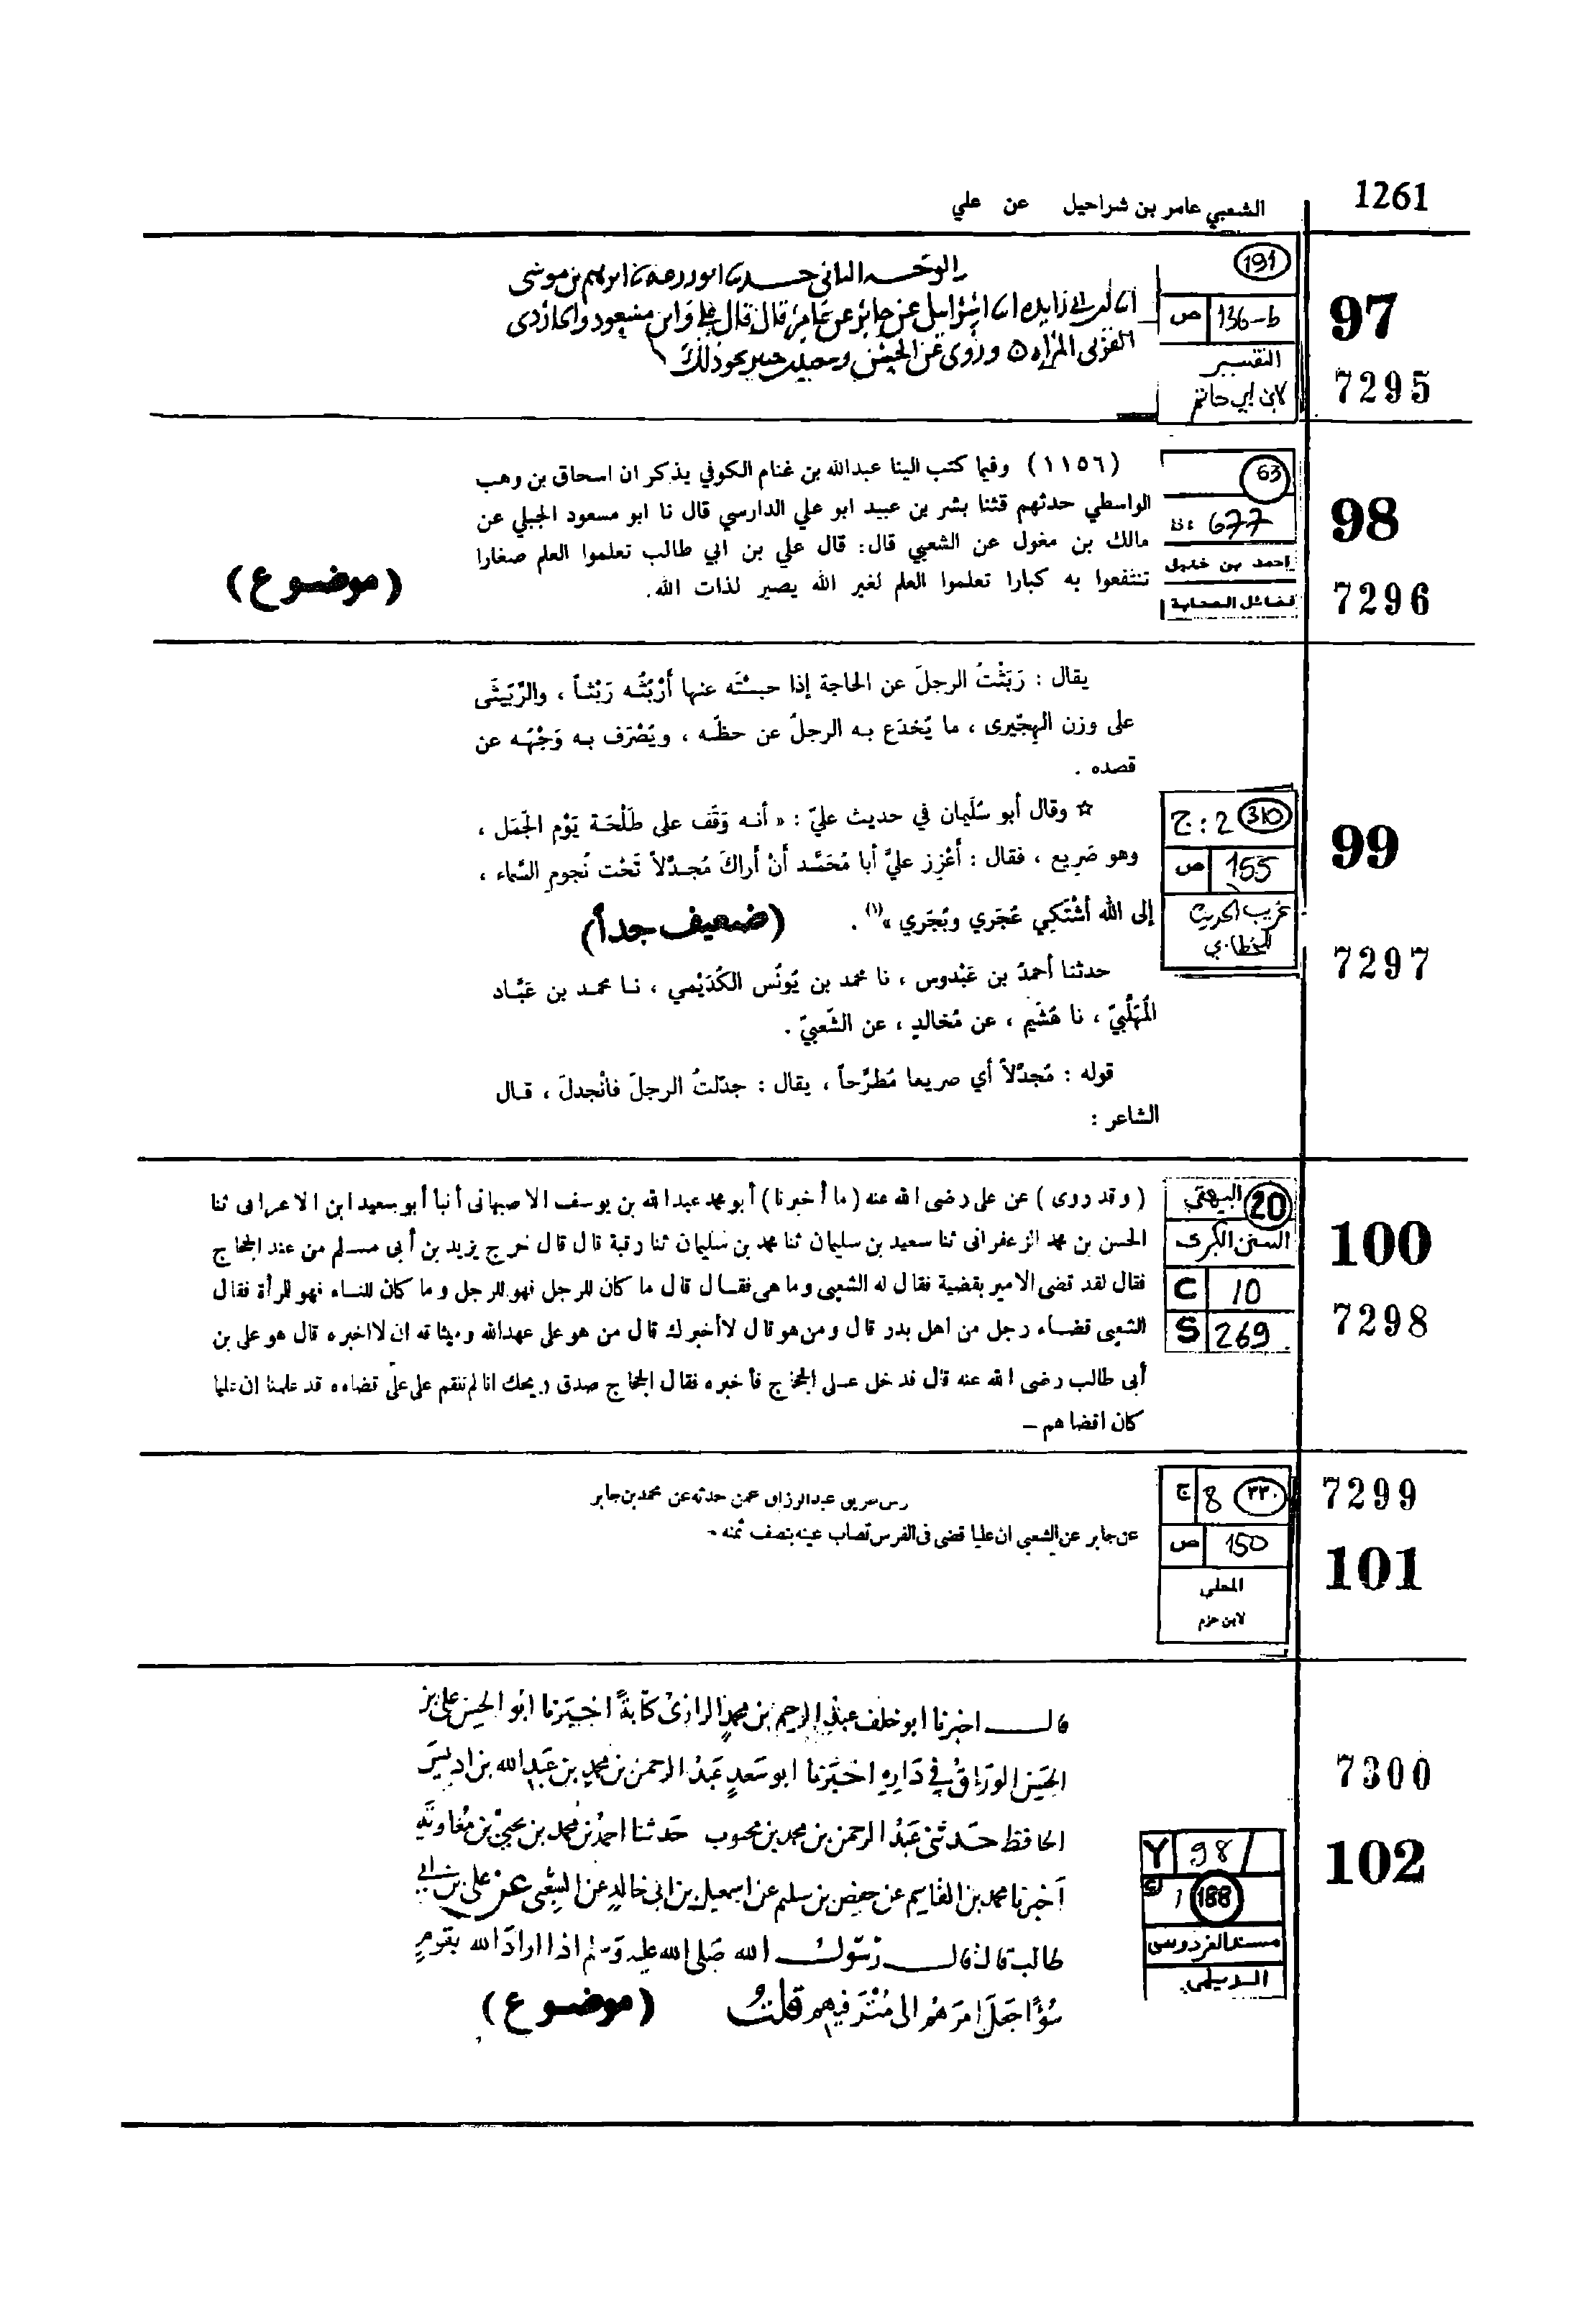 1261
الشعبي عامر بن شراحيل عن علي
97
7295
191
136-b ص
التفسير
لابن ابي حاتم
الوجه الثاني حدثنا ابو زرعة ثنا ابرهيم بن موسى
ابن ابي زايده انا اسرايل عن جابر عن عامر قال قال علي وابن مسعود والجار ذى
القربى المراه ٥ وروى عن الحسن وسعيد بن جبير نحو ذلك
98
7296
63
677
احمد بن حنبل
فضائل الصحابة
(١١٥٦) وفيما كتب الينا عبدالله بن غنام الكوفي يذكر ان اسحاق بن وهب
الواسطي حدثهم قثنا بشر بن عبيد ابو علي الدارسي قال نا ابو مسعود الجبلي عن
مالك بن مغول عن الشعبي قال: قال علي بن ابي طالب تعلموا العلم صغارا
تنتفعوا به كبارا تعلموا العلم لغير الله يصير لذات الله.
(موضوع)
يقال : رَبَثْتُ الرجلَ عن الحاجة إذا حبسْتَه عنها أَرْبُثُه رَبْثاً ، والرِّبِّيثَى
على وزن الهِجِّيرى ، ما يُخدَع به الرجلُ عن حظّه ، ويُصْرَف به وَجْهُه عن
قصده .
99
7297
310 ج : 2
155 ص
غريب الحديث
للخطابي
☆ وقال أبو سُلَيمان في حديث عليّ : « أنه وَقَف على طَلْحَة يَوْم الجَمَل ،
وهو صَرِيع ، فقال : أَعْزِز عليَّ أبا مُحَمَّد أَنْ أَراكَ مُجدَّلاً تَحْت نُجوم السَّماء ،
إلى الله أَشْتَكِي عُجَري وبُجَري »(١) .
(ضعيف جداً)
حدثنا أحمدُ بن عَبْدوس ، نا محمد بن يُونُس الكُدَيْمي ، نا محمد بن عَبَّاد
المُهَلَّبيّ ، نا هُشَيم ، عن مُخالدٍ ، عن الشَّعبيّ .
قوله : مُجدَّلاً أي صريعا مُطرَّحاً ، يقال : جدّلتُ الرجلَ فانْجدلَ ، قال
الشاعر :
100
7298
20 البيهقي
السنن الكبرى
C 10
S 269
( وقد روى ) عن على رضى الله عنه ( ما أخبرنا ) أبو محمد عبد الله بن يوسف الاصبهانى أنبأ أبو سعيد ابن الاعرابى ثنا
الحسن بن محمد الزعفرانى ثنا سعيد بن سليمان ثنا محمد بن سليمان ثنا رقبة قال قال خرج يزيد بن أبى مسلم من عند الحجاج
فقال لقد قضى الامير بقضية فقال له الشعبى وما هى فقال قال ما كان للرجل فهو للرجل وما كان للنساء فهو للمرأة فقال
الشعبى قضاء رجل من اهل بدر قال ومن هو قال لا أخبرك قال من هو على عهد الله وميثاقه ان لا اخبره قال هو على بن
أبى طالب رضى الله عنه قال فدخل على الحجاج فأخبره فقال الحجاج صدق ويحك انا لم ننقم على على قضاءه قد علمنا ان عليا
كان اقضاهم –
7299
101
٣٣٠ 8 ج
150 ص
المحلي
لابن حزم
طريق عبد الرزاق عمن حدثه عن محمد بن جابر
عن جابر عن الشعبي ان عليا قضى فى الفرس تصاب عينه بنصف ثمنه -
7300
102
Y 98/
188 1
مسند الفردوس
الديلمي
قال اخبرنا ابو خلف عبد الرحيم بن محمد الرازى كتابةً اخبرنا ابو الحسن على بن
الحسن الوراق في داره اخبرنا ابو سعد عبد الرحمن بن محمد بن عبد الله بن ادريس
الحافظ حدثنى عبد الرحمن بن محمد بن محبوب حدثنا احمد بن محمد بن يحيى بن معاوية
اخبرنا محمد بن القاسم عن حفص بن سلم عن اسمعيل بن ابى خالد عن الشعبى عن على بن ابي
طالب قال قال رسول الله صلى الله عليه وسلم اذا اراد الله بقوم
سوءًا جعل امرهم الى مترفيهم قلت
(موضوع)